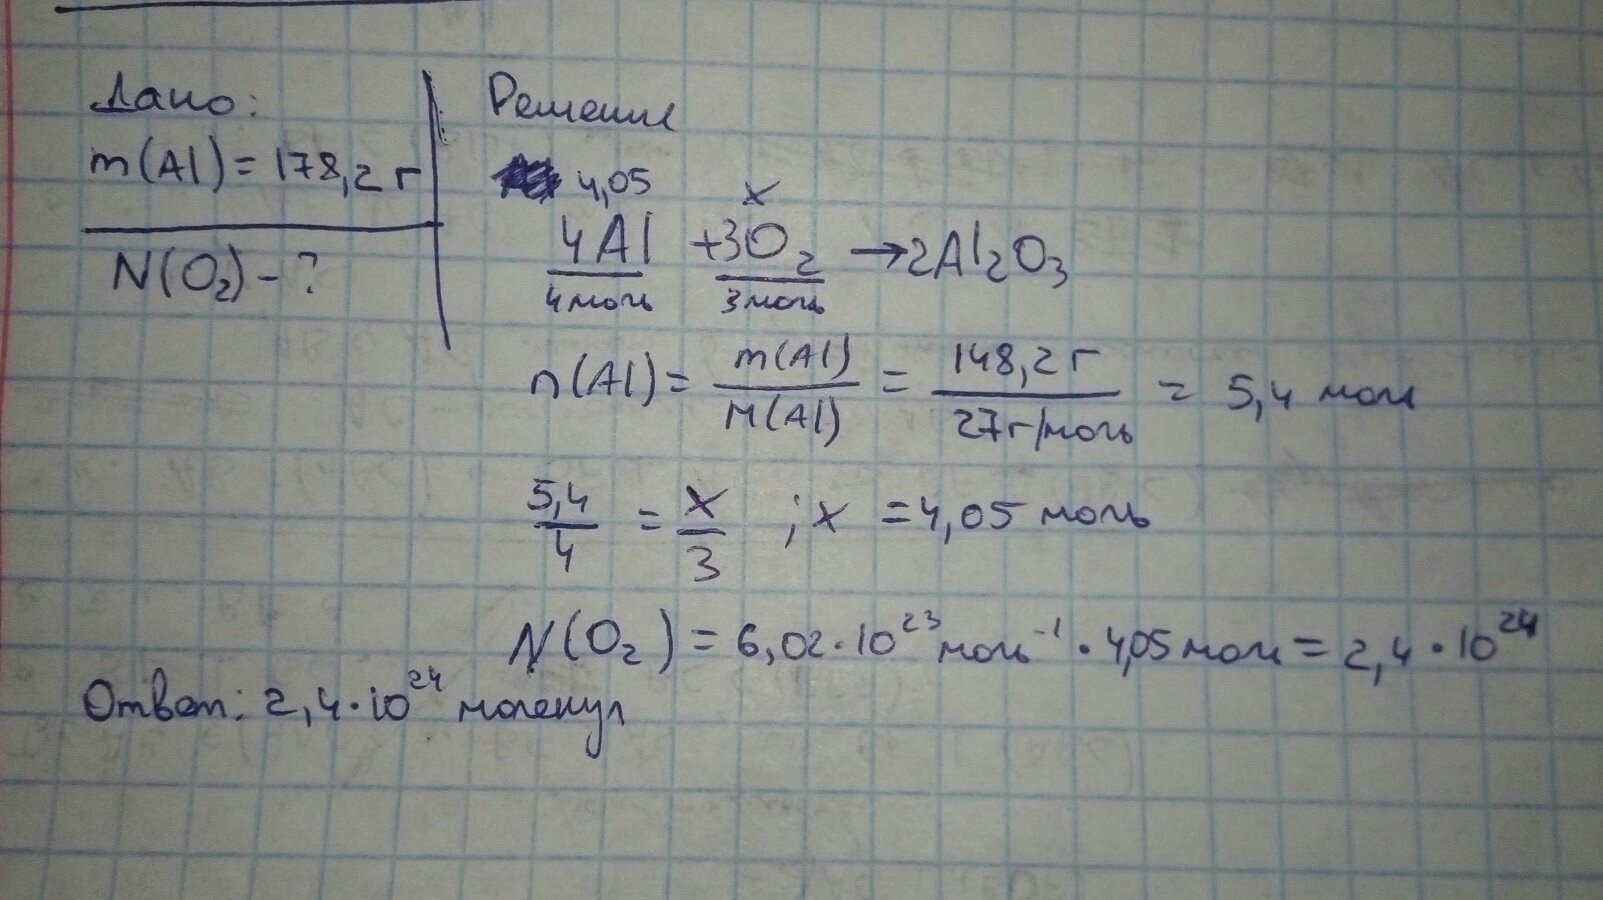 Дано:
m(Al) = 178,2 г
N(O₂) - ?
Решение
4,05 x
4Al + 3O₂ → 2Al₂O₃
4 моль 3 моль
n(Al) = m(Al) / M(Al) = 148,2 г / 27 г/моль = 5,4 моль
5,4/4 = x/3 ; x = 4,05 моль
N(O₂) = 6,02 · 10²³ моль⁻¹ · 4,05 моль = 2,4 · 10²⁴
Ответ: 2,4 · 10²⁴ молекул